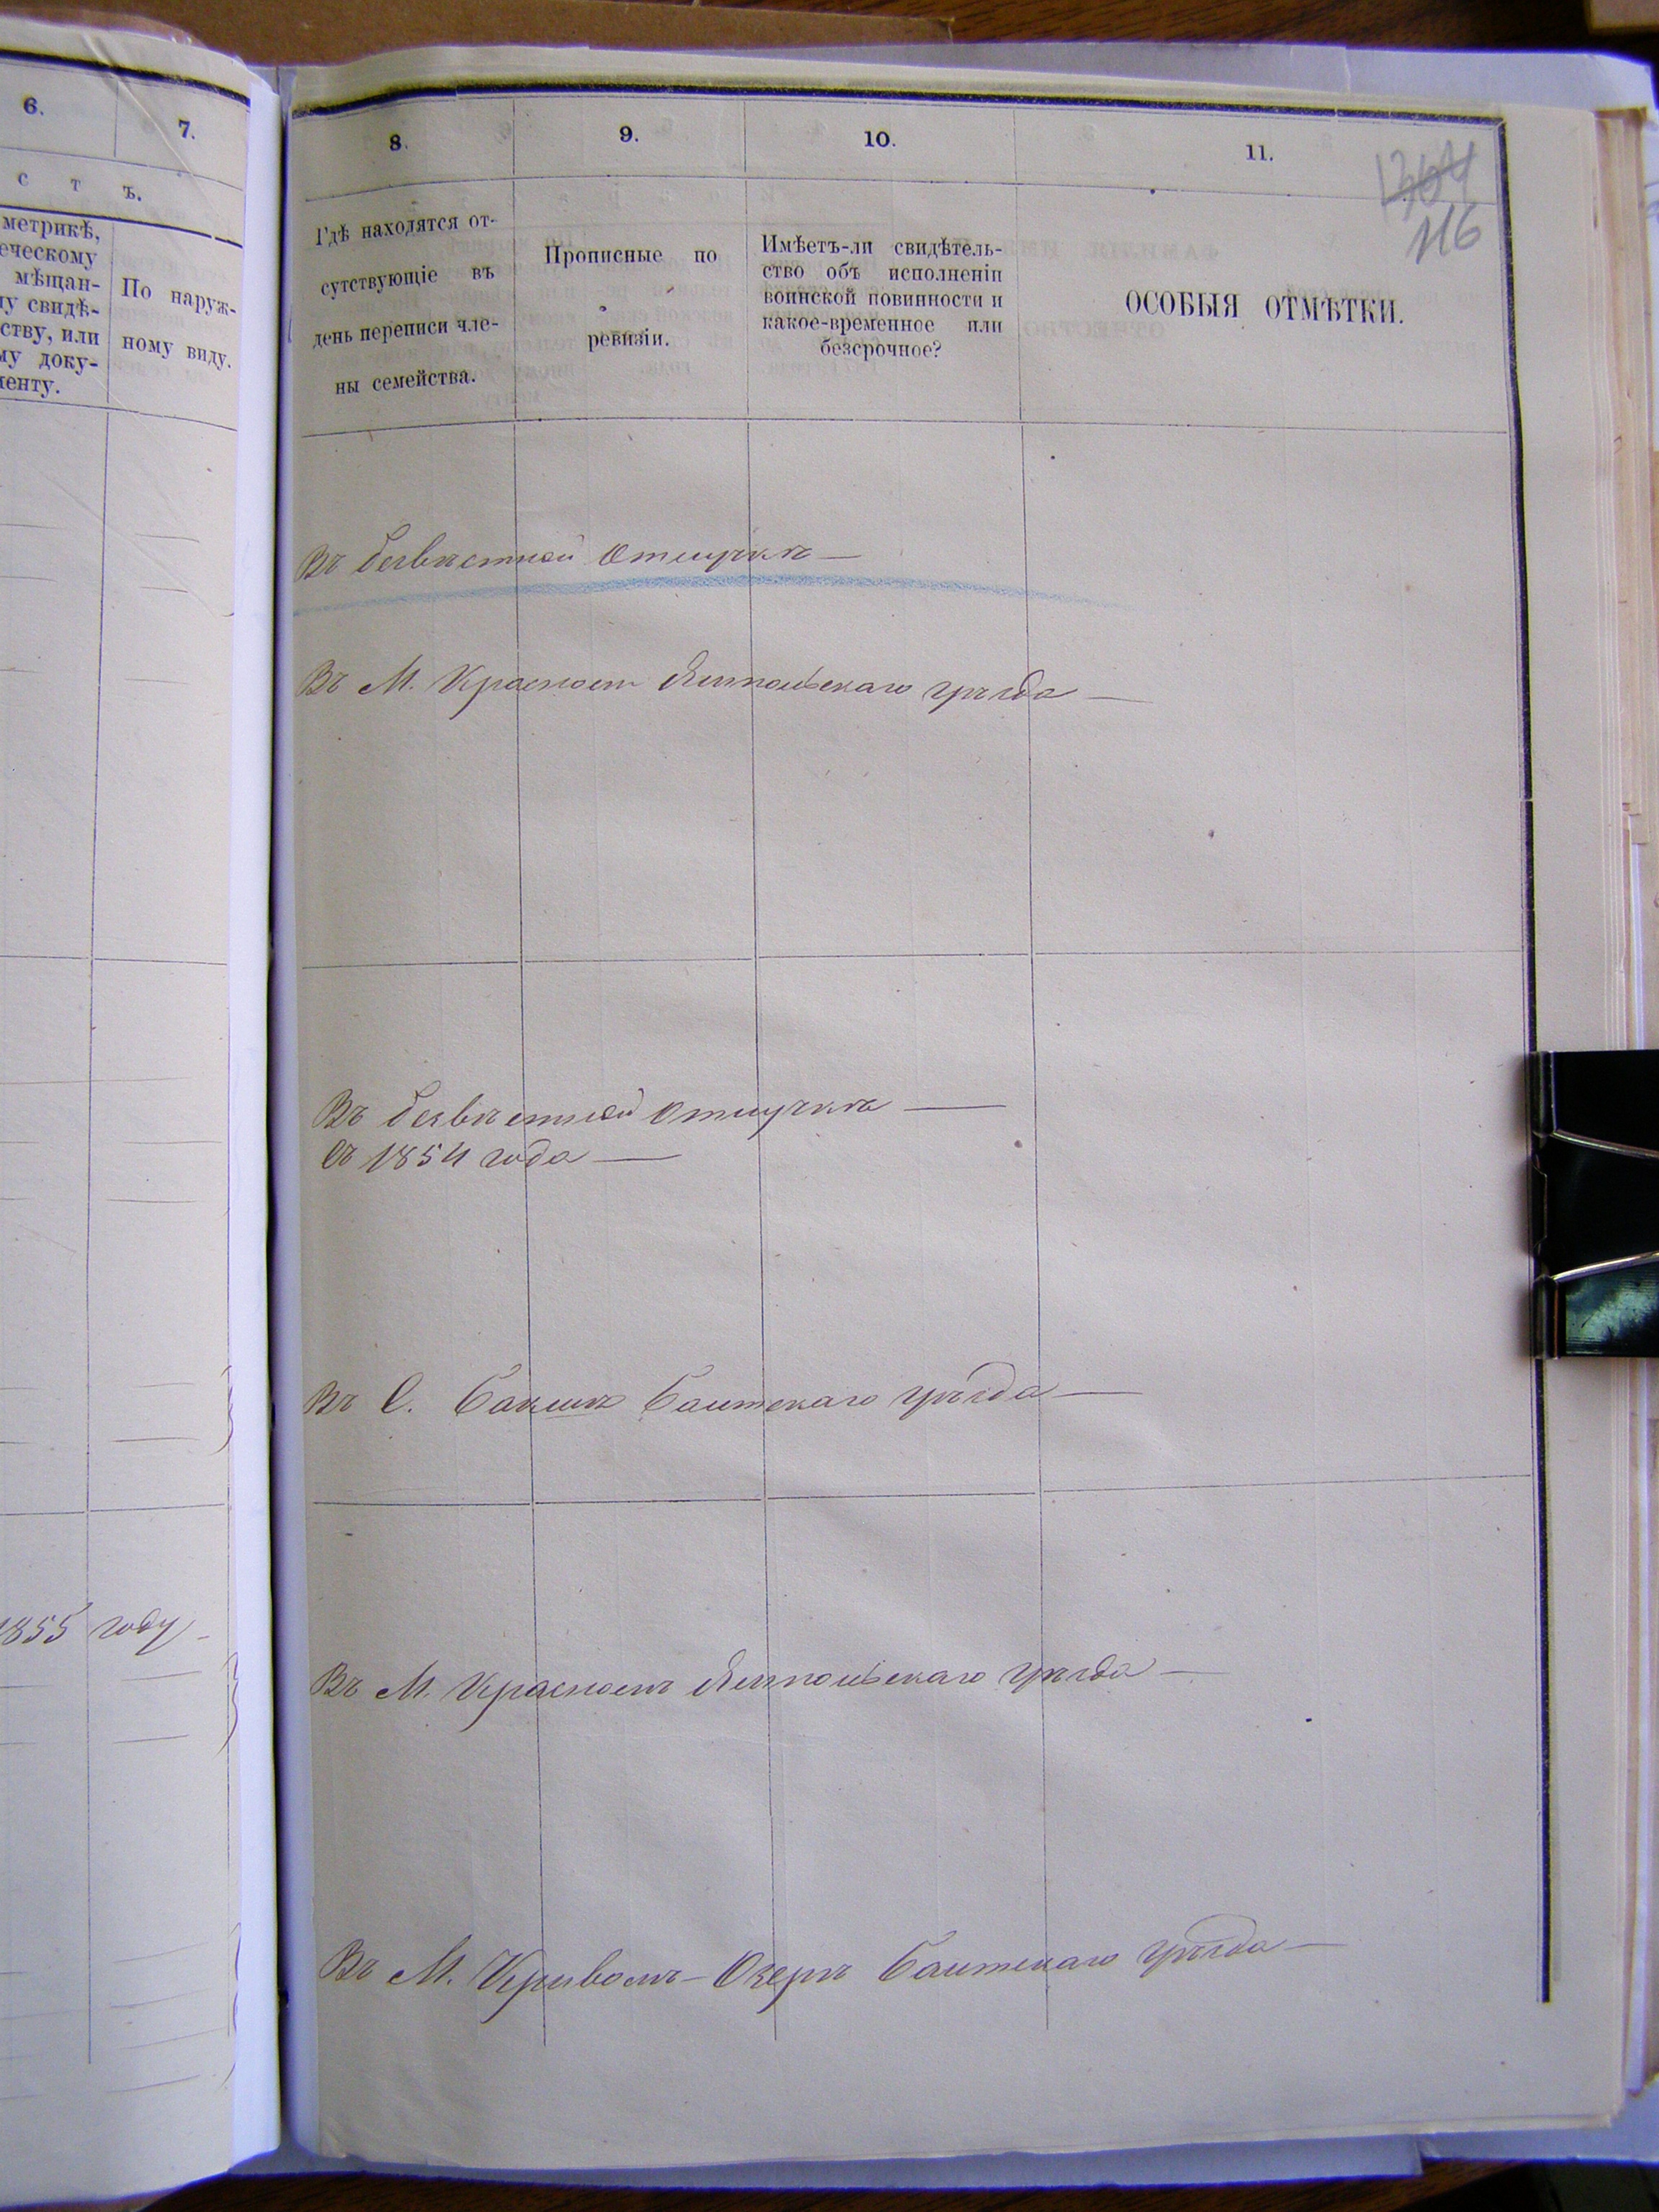 6.
7.
с т ъ.
метрикѣ,
еческому
мѣщан-
му свидѣ-
ству, или
му доку-
менту.
По наруж-
ному виду.
1855 году
8.
9.
10.
11.
1364
116
Гдѣ находятся от-
сутствующіе въ
день переписи чле-
ны семейства.
Прописные по
ревизіи.
Имѣетъ-ли свидѣтель-
ство объ исполненіи
воинской повинности и
какое-временное или
безсрочное?
ОСОБЫЯ ОТМѢТКИ.
Въ безвѣстной отлучкѣ —
Въ М. Красномъ Ямпольскаго уѣзда —
Въ безвѣстной отлучкѣ —
съ 1854 года —
Въ С. Бакшѣ Балтскаго уѣзда —
Въ М. Красномъ Ямпольскаго уѣзда —
Въ М. Кривомъ-Озерѣ Балтскаго уѣзда —